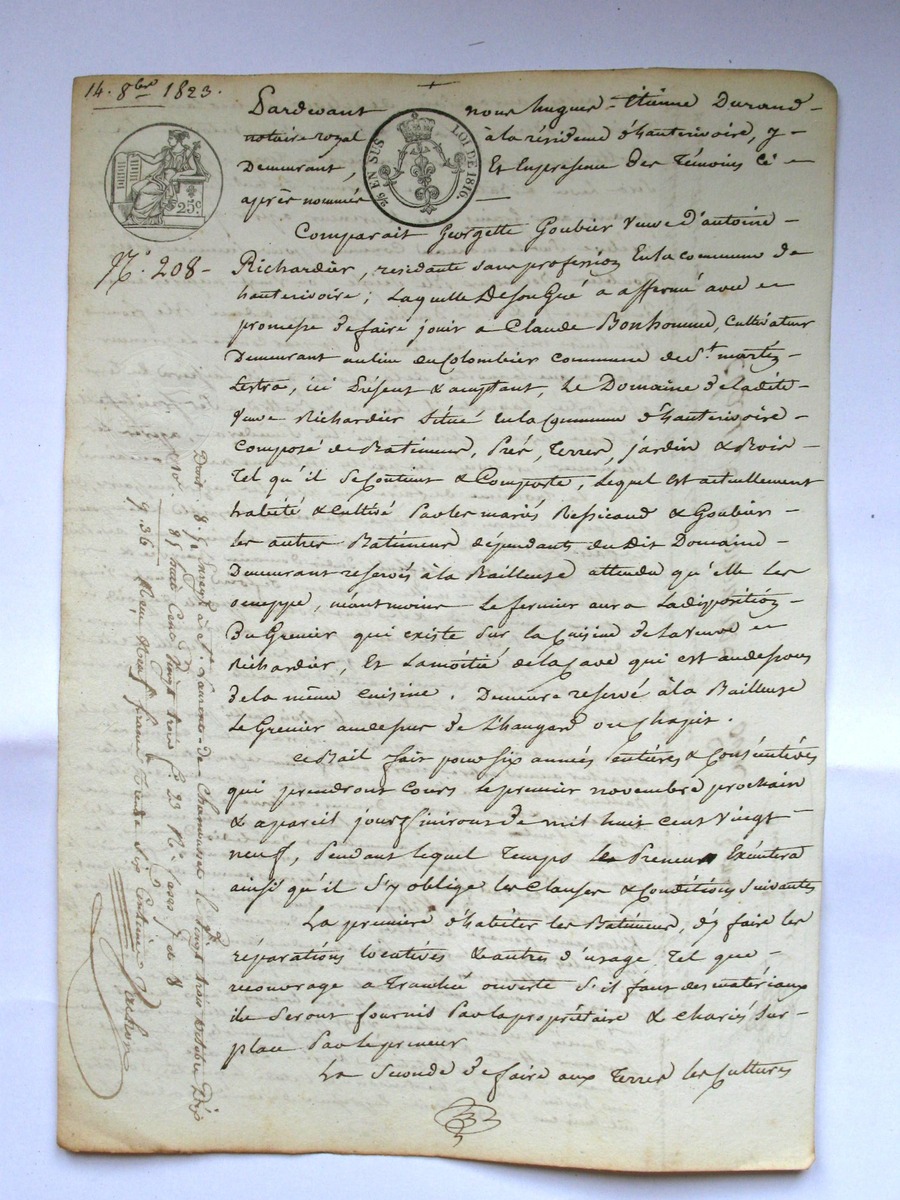 14. 8bre 1823.
Pardevant nous hugues-étienne Durand-
notaire royal à la résidence d'hauterivoire, y-
Demeurant, Et En présence des témoins Ci-
après nommés —
2/5 EN SUS LOI DE 1816.
25c
N°. 208-
Comparait Georgette Goubier Veuve d'antoine-
Richardier, residante sans profession En la commune de
hauterivoire; Laquelle De son Gré a affermé avec
promesse de faire jouir a Claude Bonhomme, Cultivateur
Demeurant au lieu du Colombier commune de St. martin-
Lestra, ici présent & acceptant, Le Domaine de ladite-
Veuve Richardier Situé En la Commune d'hauterivoire-
Composé de Batimens, Prés, Terres, jardin & Bois-
Tel qu'il se Contient & Comporte, Lequel est actuellement
habité & cultivé Par les mariés & Goubier-
les autres Batimens dépendants du Dit Domaine-
Demeurant reservés à la Bailleuse attendu qu'elle les
occuppe, néantmoins Le fermier aura La disposition-
Du Grenier qui existe sur la Cuisine de la Veuve
Richardier, Et La moitié de la Cave qui est au dessous
de la même Cuisine. Demeure reservé à la Bailleuse
Le Grenier au dessus de L'hangard ou Chapit.
Ce Bail fait pour six années entières & Consécutives
qui prendront Cours Le premier novembre prochain
& a pareil jour finiront de mil huit cent Vingt
neuf, Pendant lequel Temps le Preneur Exécutera
ainsi qu'il S'y oblige les Clauses & Conditions Suivantes
La première d'habiter les Batimens, d'y faire les
réparations locatives & autres d'usage, Tel que-
recouvrage a Tranchée ouverte S'il faut des matériaux
ils Seront fournis Par la propriétaire & chariés Sur-
place Par le preneur
La Seconde de faire aux Terres les Cultures
Enregé à St. Laurent-de-Chamousset le vingt trois octobre Dix
huit Cent Vingt trois f. 23
9.36 Reçu Neuf francs Trente Six Centimes